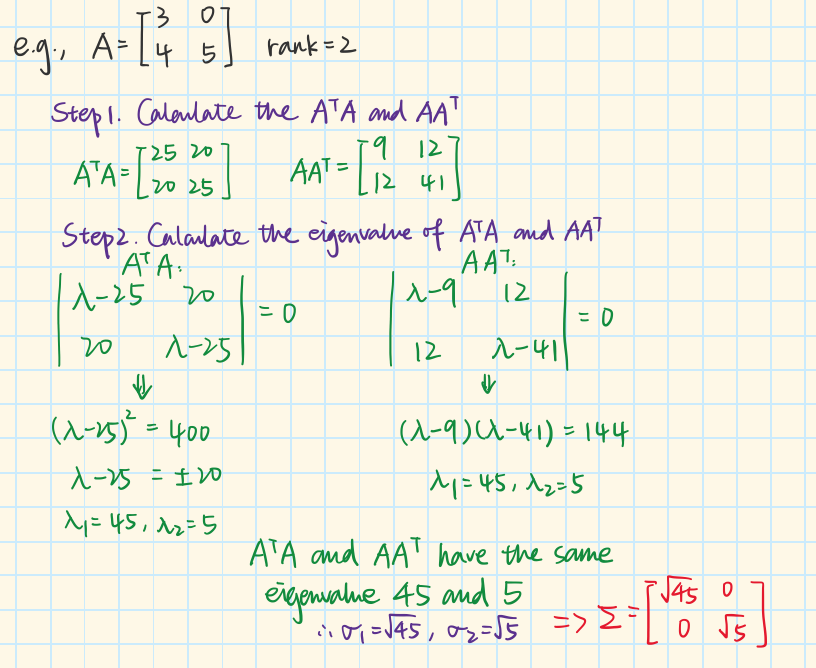 e.g., A = [3 0; 4 5] rank = 2
Step1. Calculate the AᵀA and AAᵀ
AᵀA = [25 20; 20 25] AAᵀ = [9 12; 12 41]
Step2. Calculate the eigenvalue of AᵀA and AAᵀ
AᵀA:
|λ-25 20; 20 λ-25| = 0
⇓
(λ-25)² = 400
λ-25 = ±20
λ₁=45, λ₂=5
AAᵀ:
|λ-9 12; 12 λ-41| = 0
⇓
(λ-9)(λ-41) = 144
λ₁=45, λ₂=5
AᵀA and AAᵀ have the same
eigenvalue 45 and 5
∴ σ₁=√45, σ₂=√5 => Σ = [√45 0; 0 √5]